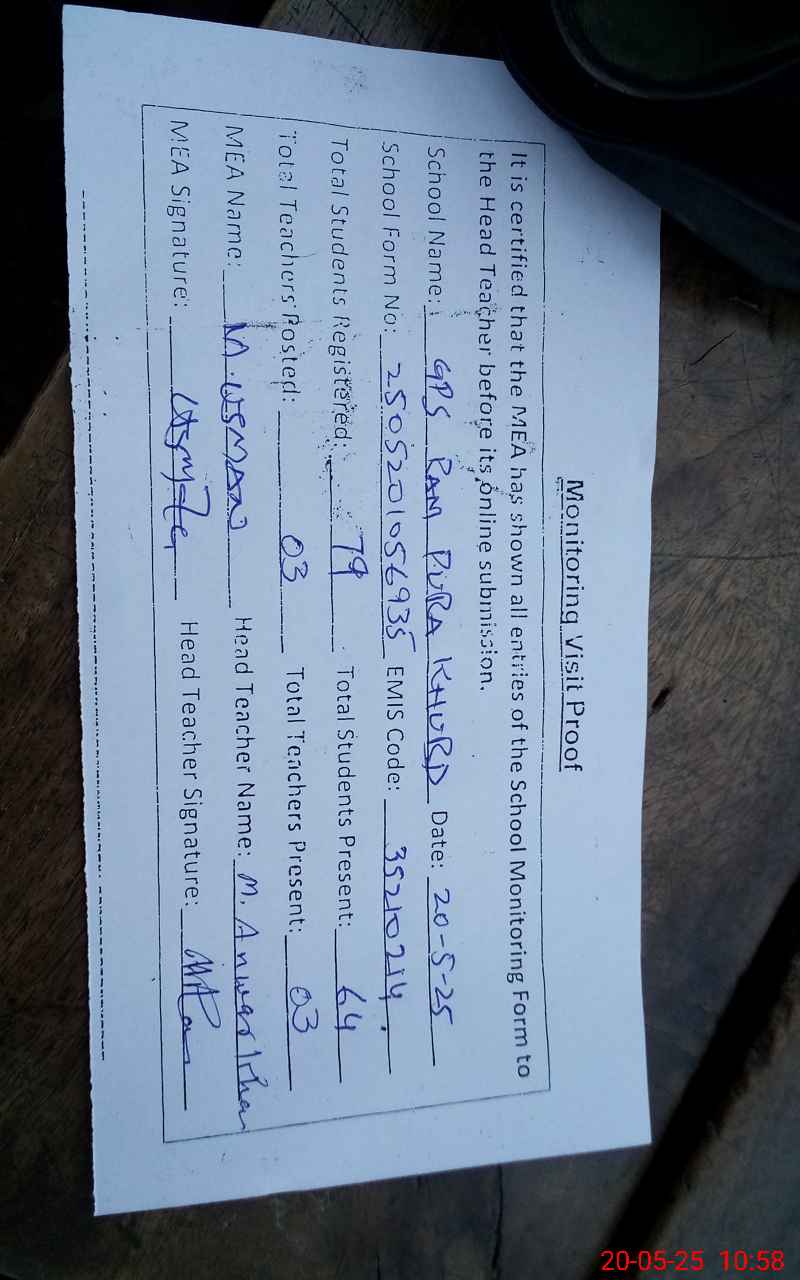 Monitoring Visit Proof
It is certified that the MEA has shown all entries of the School Monitoring Form to
the Head Teacher before its online submission.
School Name: GPS RAM PURA KHURD Date: 20-5-25
School Form No: 2505201056935 EMIS Code: 35210214
Total Students Registered: 79 Total Students Present: 64
Total Teachers Posted: 03 Total Teachers Present: 03
MEA Name: M.USMAN Head Teacher Name: M. Anwar Khan
MEA Signature: Head Teacher Signature:
20-05-25 10:58